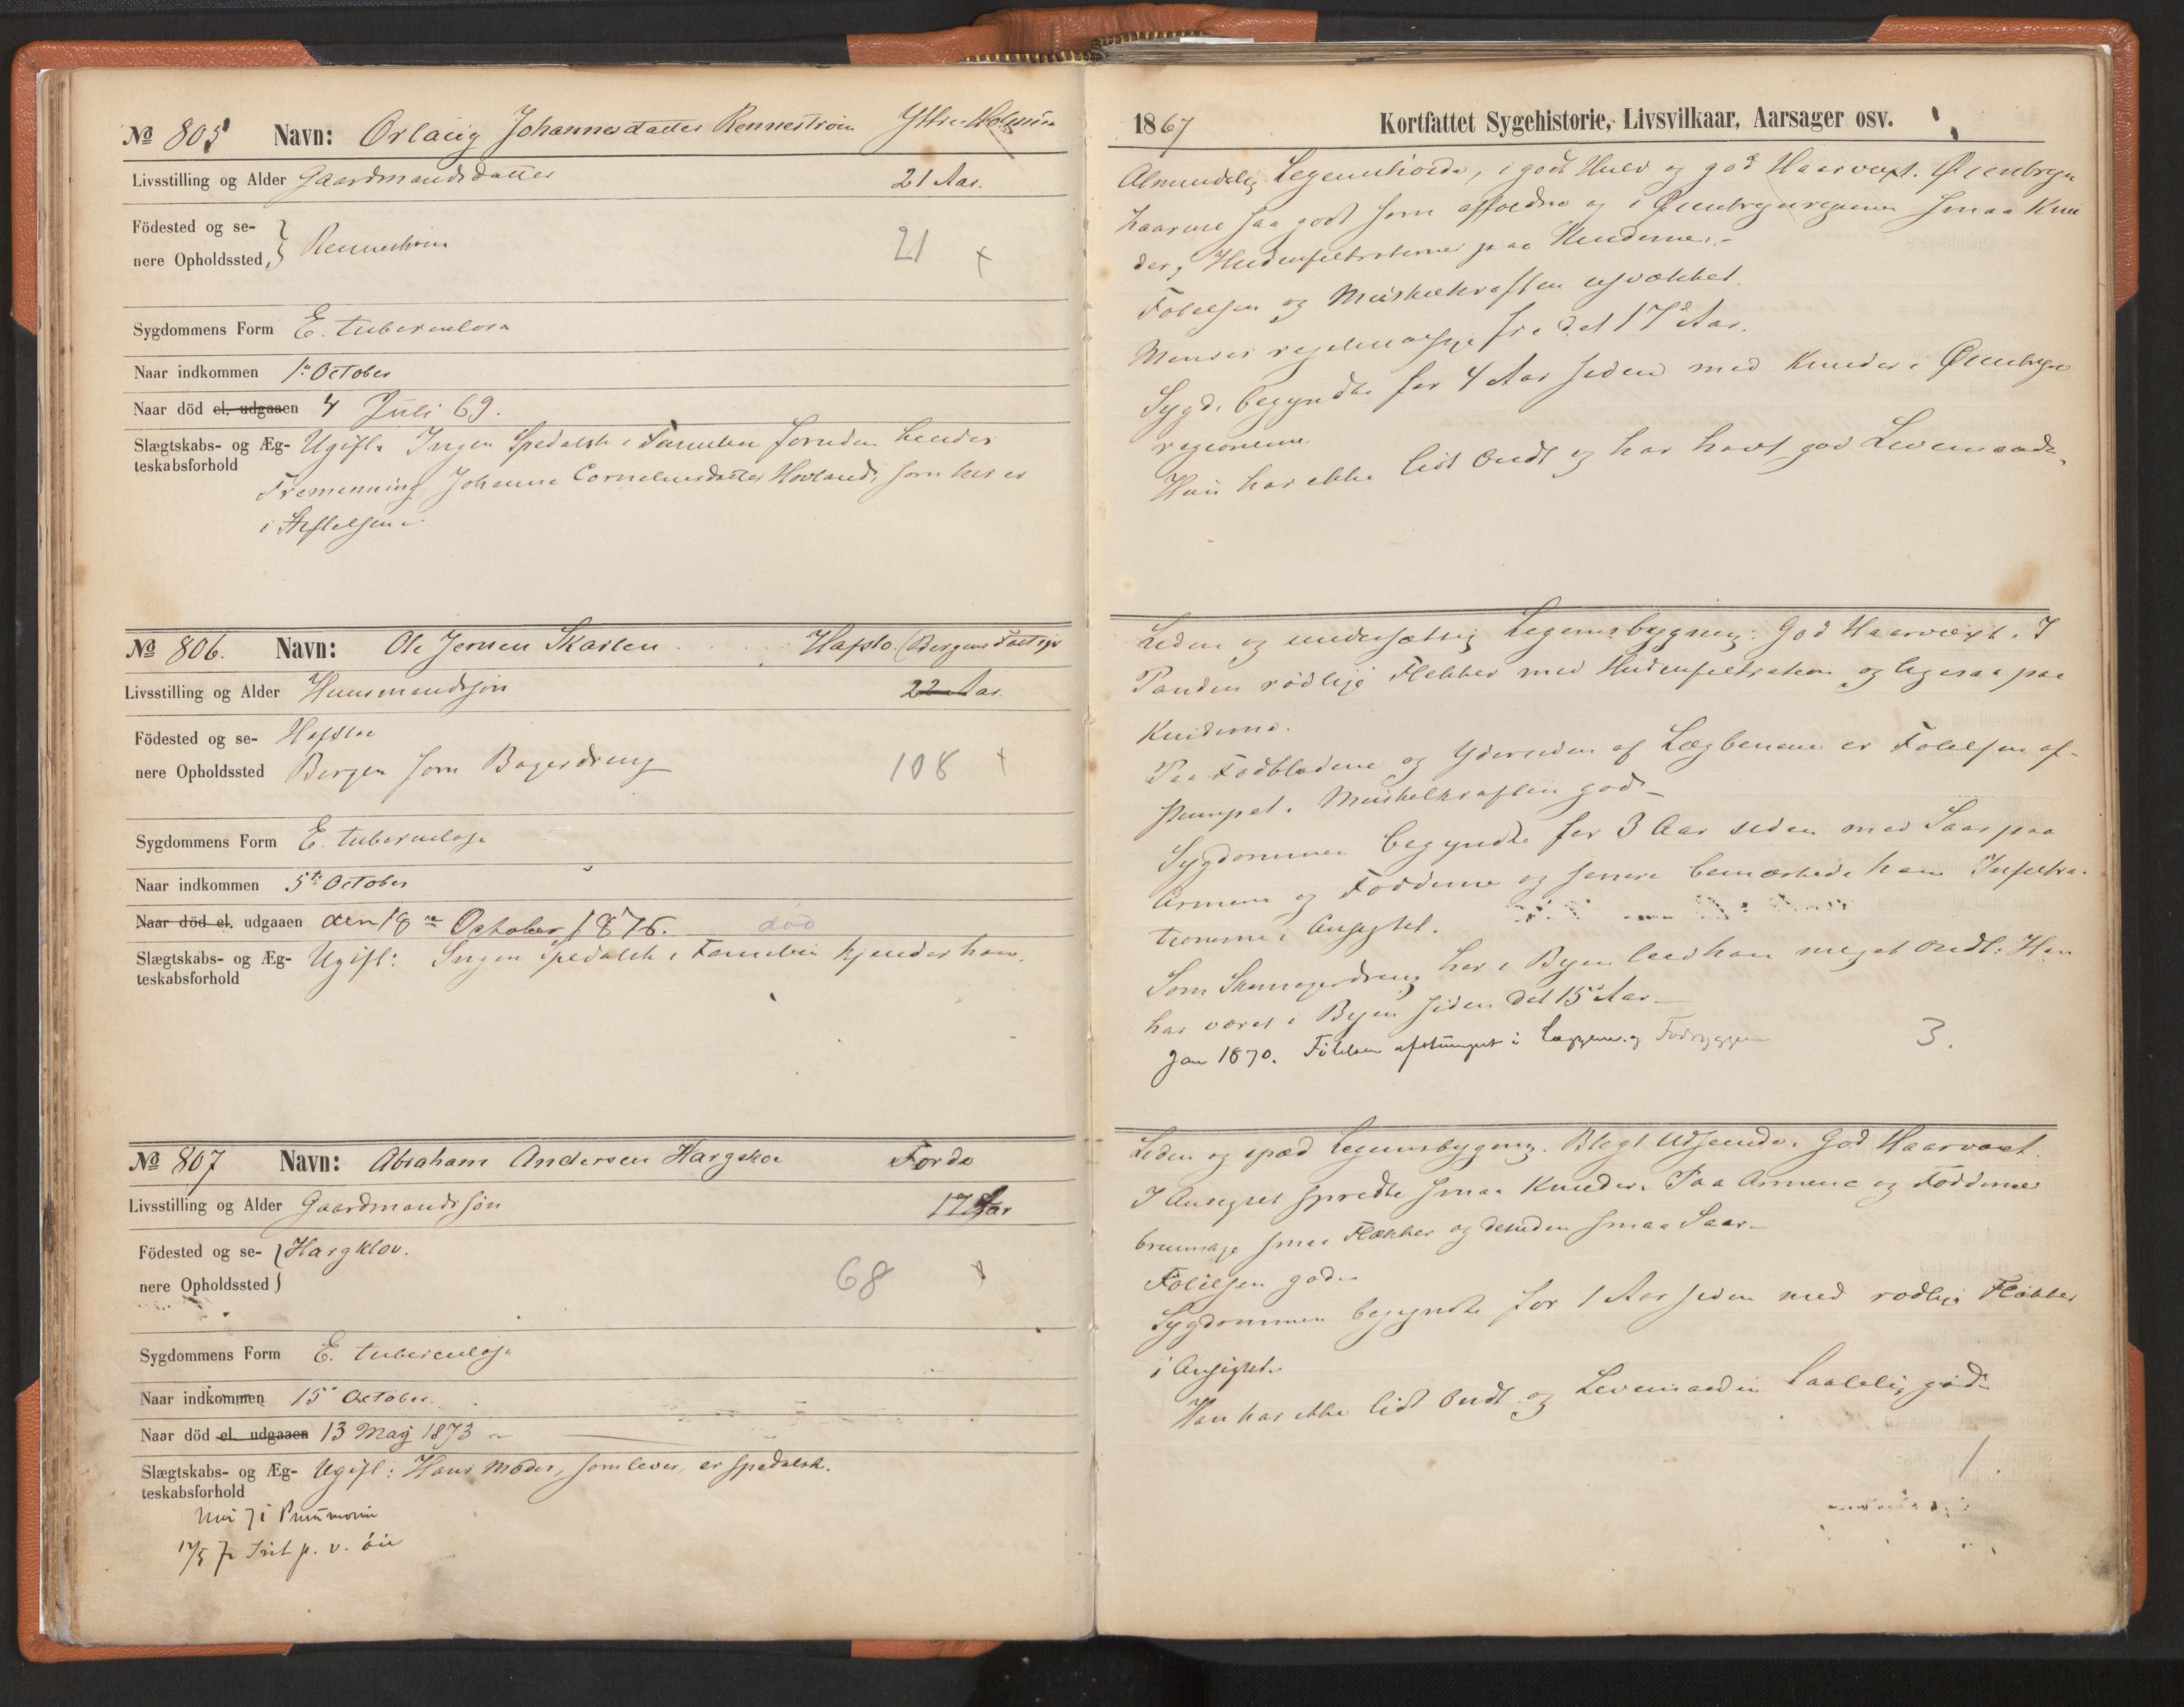 № 805 Navn: Orlaug Johannesdatter Rennestrøm Yttre-Holmen
Livsstilling og Alder Gaardmandsdatter 21 Aar.
Födested og se-
nere Opholdssted, Rennestrøm 21 +
Sygdommens Form E. tuberculosa
Naar indkommen 1ste October
Naar död el. udgaaen 4 Juli 69.
Slægtskabs- og Æg- Ugift. Ingen Spedalsk i Familien foruden hendes
teskabsforhold
Fremenning Johanne Corneliusdatter Hovland, som her er
i Stiftelsen
№ 806. Navn: Ole Jensen Skarlen Hafslo. (Bergens
Livsstilling og Alder Huusmandssøn 22 Aar.
Födested og se- Hafslo
nere Opholdssted Bergen som Bagerdreng 108 +
Sygdommens Form E. tuberculosa
Naar indkommen 5te October
Naar död el. udgaaen den 18de October 1876. død
Slægtskabs- og Æg- Ugift: Ingen Spedalsk i Familien kjender han.
teskabsforhold
№ 807 Navn: Abraham Andersen Hargskov Førde
Livsstilling og Alder Gaardmandssøn 17 Aar
Födested og se- Hargklov.
nere Opholdssted 68 +
Sygdommens Form E. tuberculosa
Naar indkommen 15 October.
Naar död el. udgaaen 13 Maij 1873
Slægtskabs- og Æg- Ugift: Hans Moder, som lever, er spedalsk.
teskabsforhold
71 Pneumonia
12/5 72 Irit p. v. öie
1867 Kortfattet Sygehistorie, Livsvilkaar, Aarsager osv.
Almindelig Legemshøide, i godt Huld og god Haarvæxt. Øienbryn
haarene saa godt som affaldne og i Øienbrynregionen smaa Knu
der, Hudinfiltrationer paa Kinderne.
Følelsen og Muskelkraften usvækket.
Menses regelmæssige fra det 17de Aar.
Sygd. begyndte for 4 Aar siden med Knuder i Øienbryn
regionerne.
Hun har ikke lidt Ondt og har havt god Levemaade.
Liden og undersætsig Legemsbygning. God Haarvæxt. I
Panden rødlige Flekker med Hudinfiltration og ligesaa paa
Kinderne.
Paa Fodbladene og Ydersiden af Lægbenene er Følelsen af-
stumpet. Muskelkraften god.
Sygdommen begyndte for 3 Aar siden med Saar paa
Armene og Fødderne og senere bemærkede han Infiltra-
tionerne i Ansigtet.
Som Skomagerdreng her i Byen leed han meget Ondt: Han
har været i Byen siden det 15de Aar.
Jan 1870. Følelsen afstumpet i Læggene og Fodryggen 3.
Liden og spæd Legemsbygning. Blegt Udseende. God Haarvæxt.
I Ansigtet spredte smaa Knuder. Paa Armene og Fødderne
brunlige smaa Flækker og desuden smaa Saar.
Følelsen god.
Sygdommen begyndte for 1 Aar siden med rødlige Flækker
i Ansigtet.
Han har ikke lidt Ondt og Levemaaden taalelig god.
1.